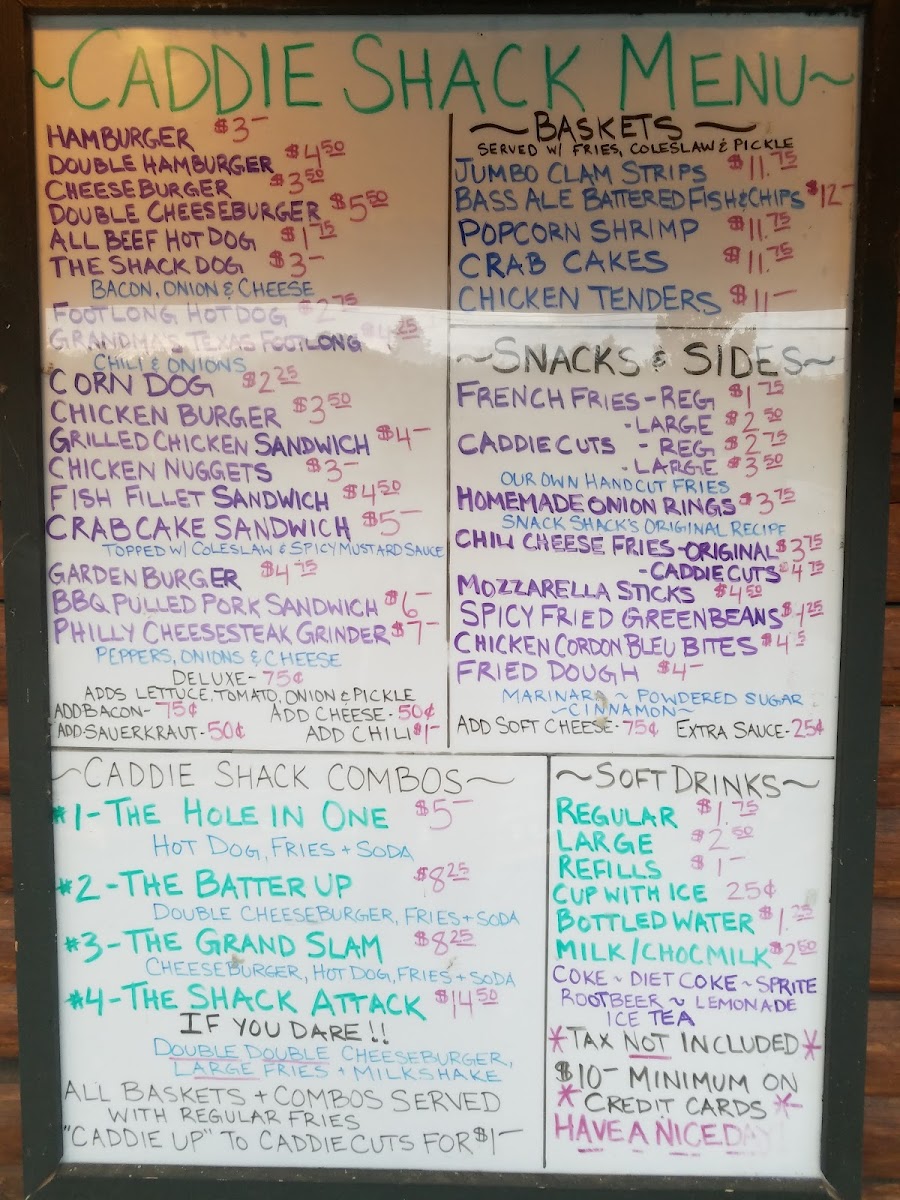 ~CADDIE SHACK MENU~
HAMBURGER $3-
DOUBLE HAMBURGER $4 50
CHEESEBURGER $3 50
DOUBLE CHEESEBURGER $5 50
ALL BEEF HOT DOG $1 75
THE SHACK DOG $3-
BACON, ONION & CHEESE
FOOTLONG HOT DOG $2 75
GRANDMA'S TEXAS FOOTLONG $4 25
CHILI & ONIONS
CORN DOG $2 25
CHICKEN BURGER $3 50
GRILLED CHICKEN SANDWICH $4-
CHICKEN NUGGETS $3-
FISH FILLET SANDWICH $4 50
CRABCAKE SANDWICH $5-
TOPPED W/ COLESLAW & SPICY MUSTARD SAUCE
GARDEN BURGER $4 75
BBQ PULLED PORK SANDWICH $6-
PHILLY CHEESESTEAK GRINDER $7-
PEPPERS, ONIONS & CHEESE
DELUXE- 75¢
ADDS LETTUCE, TOMATO, ONION & PICKLE
ADD BACON- 75¢ ADD CHEESE- 50¢
ADD SAUERKRAUT- 50¢ ADD CHILI $1-
~BASKETS~
SERVED W/ FRIES, COLESLAW & PICKLE
JUMBO CLAM STRIPS $11.75
BASS ALE BATTERED FISH & CHIPS $12-
POPCORN SHRIMP $11.75
CRAB CAKES $11.75
CHICKEN TENDERS $11-
~SNACKS & SIDES~
FRENCH FRIES - REG $1 75
- LARGE $2 50
CADDIE CUTS - REG $2 75
- LARGE $3 50
OUR OWN HANDCUT FRIES
HOMEMADE ONION RINGS $3 75
SNACK SHACK'S ORIGINAL RECIPE
CHILI CHEESE FRIES -ORIGINAL $3 75
-CADDIECUTS $4 75
MOZZARELLA STICKS $4 50
SPICY FRIED GREENBEANS
CHICKEN CORDON BLEU BITES
FRIED DOUGH $4-
MARINARA ~ POWDERED SUGAR
~CINNAMON
ADD SOFT CHEESE- 75¢ EXTRA SAUCE- 25¢
~CADDIE SHACK COMBOS~
#1-THE HOLE IN ONE $5-
HOT DOG, FRIES + SODA
#2-THE BATTER UP $8 25
DOUBLE CHEESEBURGER, FRIES + SODA
#3-THE GRAND SLAM $8 25
CHEESEBURGER, HOT DOG, FRIES + SODA
#4-THE SHACK ATTACK $14 50
IF YOU DARE!!
DOUBLE DOUBLE CHEESEBURGER,
LARGE FRIES + MILKSHAKE
ALL BASKETS + COMBOS SERVED
WITH REGULAR FRIES
"CADDIE UP" TO CADDIECUTS FOR $1-
~SOFT DRINKS~
REGULAR $1.75
LARGE $2 50
REFILLS $1-
CUP WITH ICE 25¢
BOTTLED WATER
MILK/CHOC MILK $2 50
COKE ~ DIET COKE ~ SPRITE
ROOTBEER ~ LEMONADE
ICE TEA
*TAX NOT INCLUDED*
$10- MINIMUM ON
*CREDIT CARDS*
HAVE A NICE DAY!